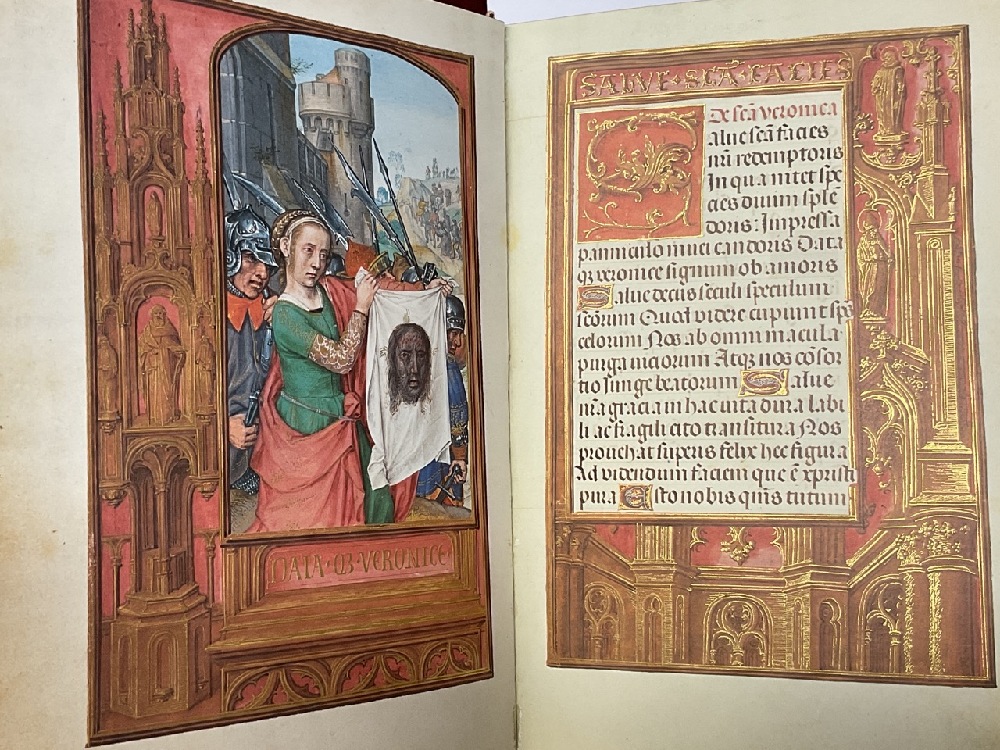 DATA · QZ · VERONICE
SALVE · SCĀ FACIES
De scā veronica
alue scā facies
nrī redemptoris
In qua nitet spe
cies diuini splē
doris: Impressa
panniculo niuei candoris Data
qz veronice signum ob amoris
Salue decus seculi speculum
scōrum Quod videre cupiunt sps
celorum Nos ab omni macula
purga viciorum Atqz nos cōsor
tio iunge beatorum Salue
nrā gracia in hac vita dura labi
li ac fragili cito transitura Nos
prouehat superis felix hec figura
Ad videndum faciem que ē xpristi
pura Esto nobis qms tutum